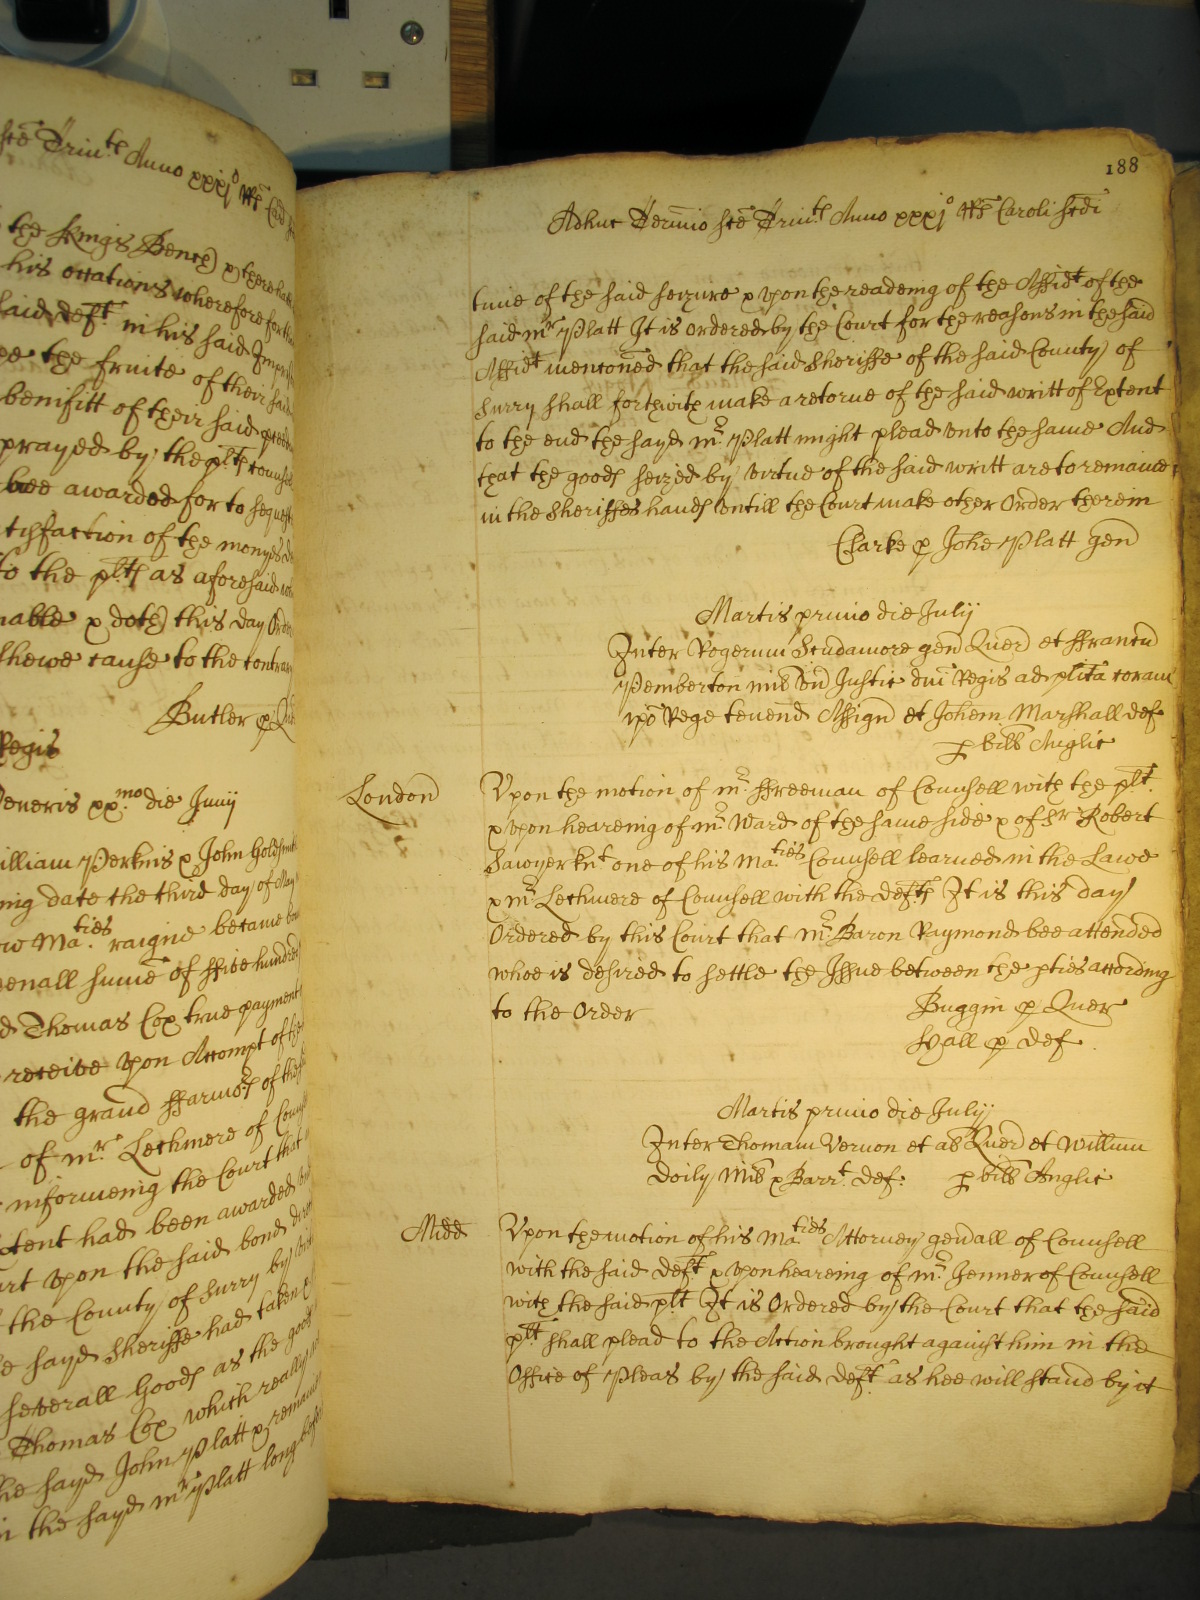 Trin:te Anno xxxjo Rs Car
the Kings Bench) & there hath
his occations wherefore for
said Deft. in his said
the fruite of their said
benifitt of their said
prayed by the plts counsell
bee awarded for to sequest
tisfaction of the monyes
to the plts as aforesaid
nable & doth this day Order
shewe cause to the contrary
Butler p Quer
Regis
Veneris xx.mo die Junij
William Perkins & John Goldsmith
ing date the third day of May
Ma.ties raigne became
penall sume of ffive hundred
Thomas Cox true payment
receive upon Accompt of the
the grand ffarmors of the
of mr. Lechmere of Counsell
informeing the Court that
tent had been awarded
upon the said bond
the County of Surry by
sayd Sheriffe had taken
severall Goods as the goods
Thomas Cox which really
sayd John Platt & remained
in the sayd mr. Platt long before
188
Adhuc Termio Sce Trin:te Anno xxxjo Rs Caroli Scdi
time of the said seizure & upon the readeing of the Affidt of the
said mr. Platt It is ordered by the Court for the reasons in the said
Affidt mencōned that the said Sheriffe of the said County of
Surry shall forthwith make a retorne of the said writt of Extent
to the end the sayd mr. Platt might plead unto the same And
that the goods seized by virtue of the said writt are to remaine
in the Sheriffes hands untill the Court make other Order therein
Clarke p Johe Platt gen
Martis primo die Julij
Inter Rogerum Scudamore gen Quer et ffrancū
Pemberton mil un Justic dni Regis ad plita coram
ipo Rege tenend Assign et Johem Marshall def
p bill Anglic
London Upon the motion of mr. ffreeman of Counsell with the plt.
& upon heareing of mr. Ward of the same side & of Sr Robert
Sawyer knt one of his Ma.ties Counsell learned in the Lawe
& mr. Lechmere of Counsell with the defts It is this day
Ordered by this Court that mr. Baron Raymond bee attended
whoe is desired to settle the Issue betweene the pties according
to the Order Buggin p Quer
Hall p def.
Martis primo die Julij
Inter Thomam Vernon et al Quer et Willum
Doily Mil & Barrt. def: p bill Anglic
Midd Upon the motion of his Ma.ties Attorney genall of Counsell
with the said Deft & upon heareing of mr. Jenner of Counsell
with the said plt It is Ordered by the Court that the said
plt shall plead to the Action brought against him in the
Office of Pleas by the said Deft. as hee will stand by it